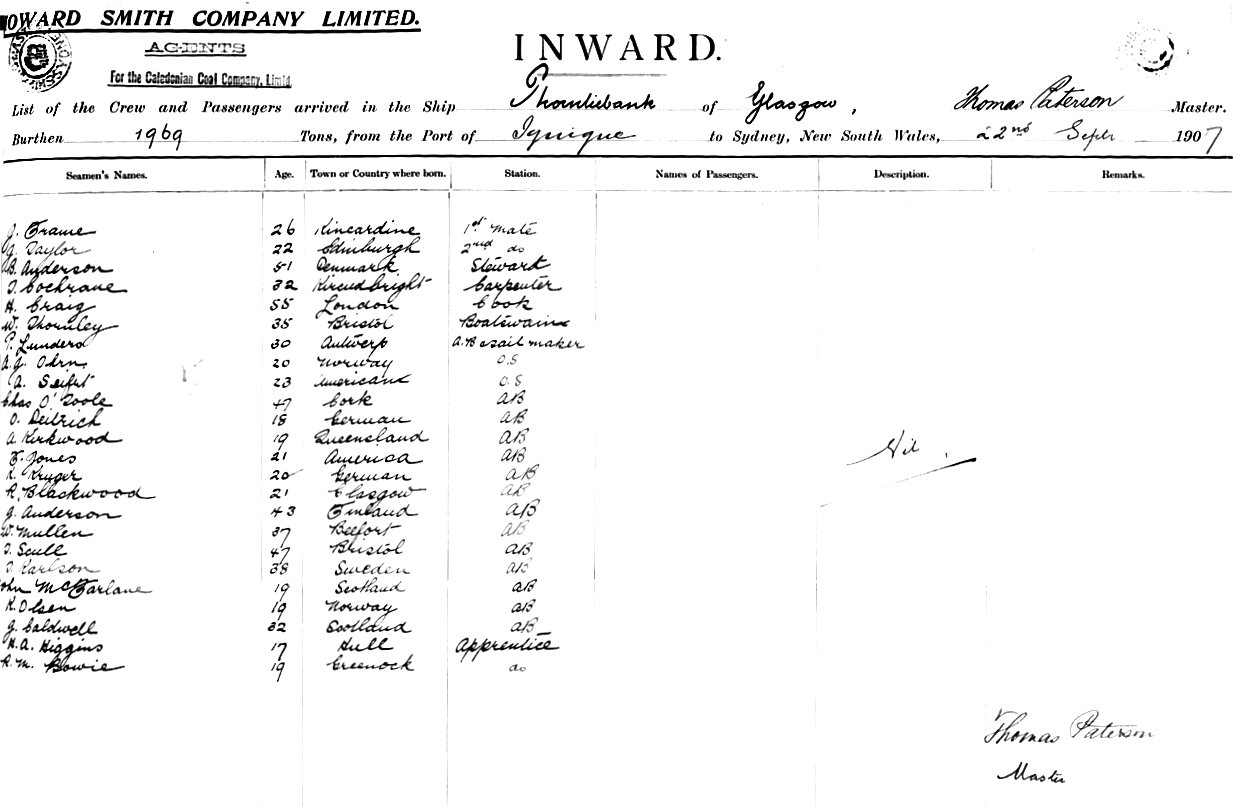 OWARD SMITH COMPANY LIMITED.
AGENTS
For the Caledonian Coal Company, Limtd.
INWARD.
List of the Crew and Passengers arrived in the Ship Thornliebank of Glasgow, Thomas Paterson Master.
Burthen 1969 Tons, from the Port of Iquique to Sydney, New South Wales, 22nd Septr 1907
Seamen's Names. Age. Town or Country where born. Station. Names of Passengers. Description. Remarks.
J. Frame 26 Kincardine 1st Mate
G. Taylor 22 Edinburgh 2nd do
B. Anderson 51 Denmark Steward
T. Cochrane 32 Kircudbright Carpenter
H. Craig 55 London Cook
W. Thornley 35 Bristol Boatswain
P. Lunders 30 Antwerp A.B & sail maker
A.G. Ohrn 20 Norway O.S
A. Seifert 23 American O.S
Chas O'Toole 47 Cork AB
O. Deitrich 18 German AB
A. Kirkwood 19 Queensland AB
F. Jones 21 America AB
K. Kruger 20 German AB
R. Blackwood 21 Glasgow AB
G. Anderson 43 Finland AB
W. Mullen 37 Belfort AB
T. Scull 47 Bristol AB
T. Karlson 38 Sweden AB
John McFarlane 19 Scotland AB
K. Olsen 19 Norway AB
G. Caldwell 32 Scotland AB
H.A. Higgins 17 Hull Apprentice
R.M. Bowie 19 Greenock do
Nil
Thomas Paterson
Master